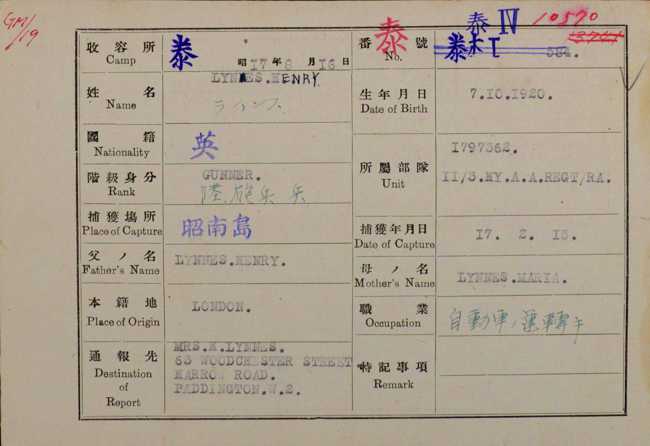 GM/19
收容所
Camp
泰
昭 17 年 8 月 16 日
番號
No.
泰
泰 IV
10590
姓名
Name
LYNNES.HENRY
ラインス
生年月日
Date of Birth
7.10.1920.
國籍
Nationality
英
階級身分
Rank
GUNNER.
陸、砲兵 兵
所屬部隊
Unit
1797362.
II/3.HY.A.A.REGT/RA.
捕獲場所
Place of Capture
昭南島
捕獲年月日
Date of Capture
17. 2. 15.
父ノ名
Father's Name
LYNNES.HENRY.
母ノ名
Mother's Name
LYNNES.MARIA.
本籍地
Place of Origin
LONDON.
職業
Occupation
自動車ノ運轉手
通報先
Destination
of
Report
MRS.M.LYNNES.
63 WOODCHESTER STREET
HARROW ROAD.
PADDINGTON.W.2.
特記事項
Remark